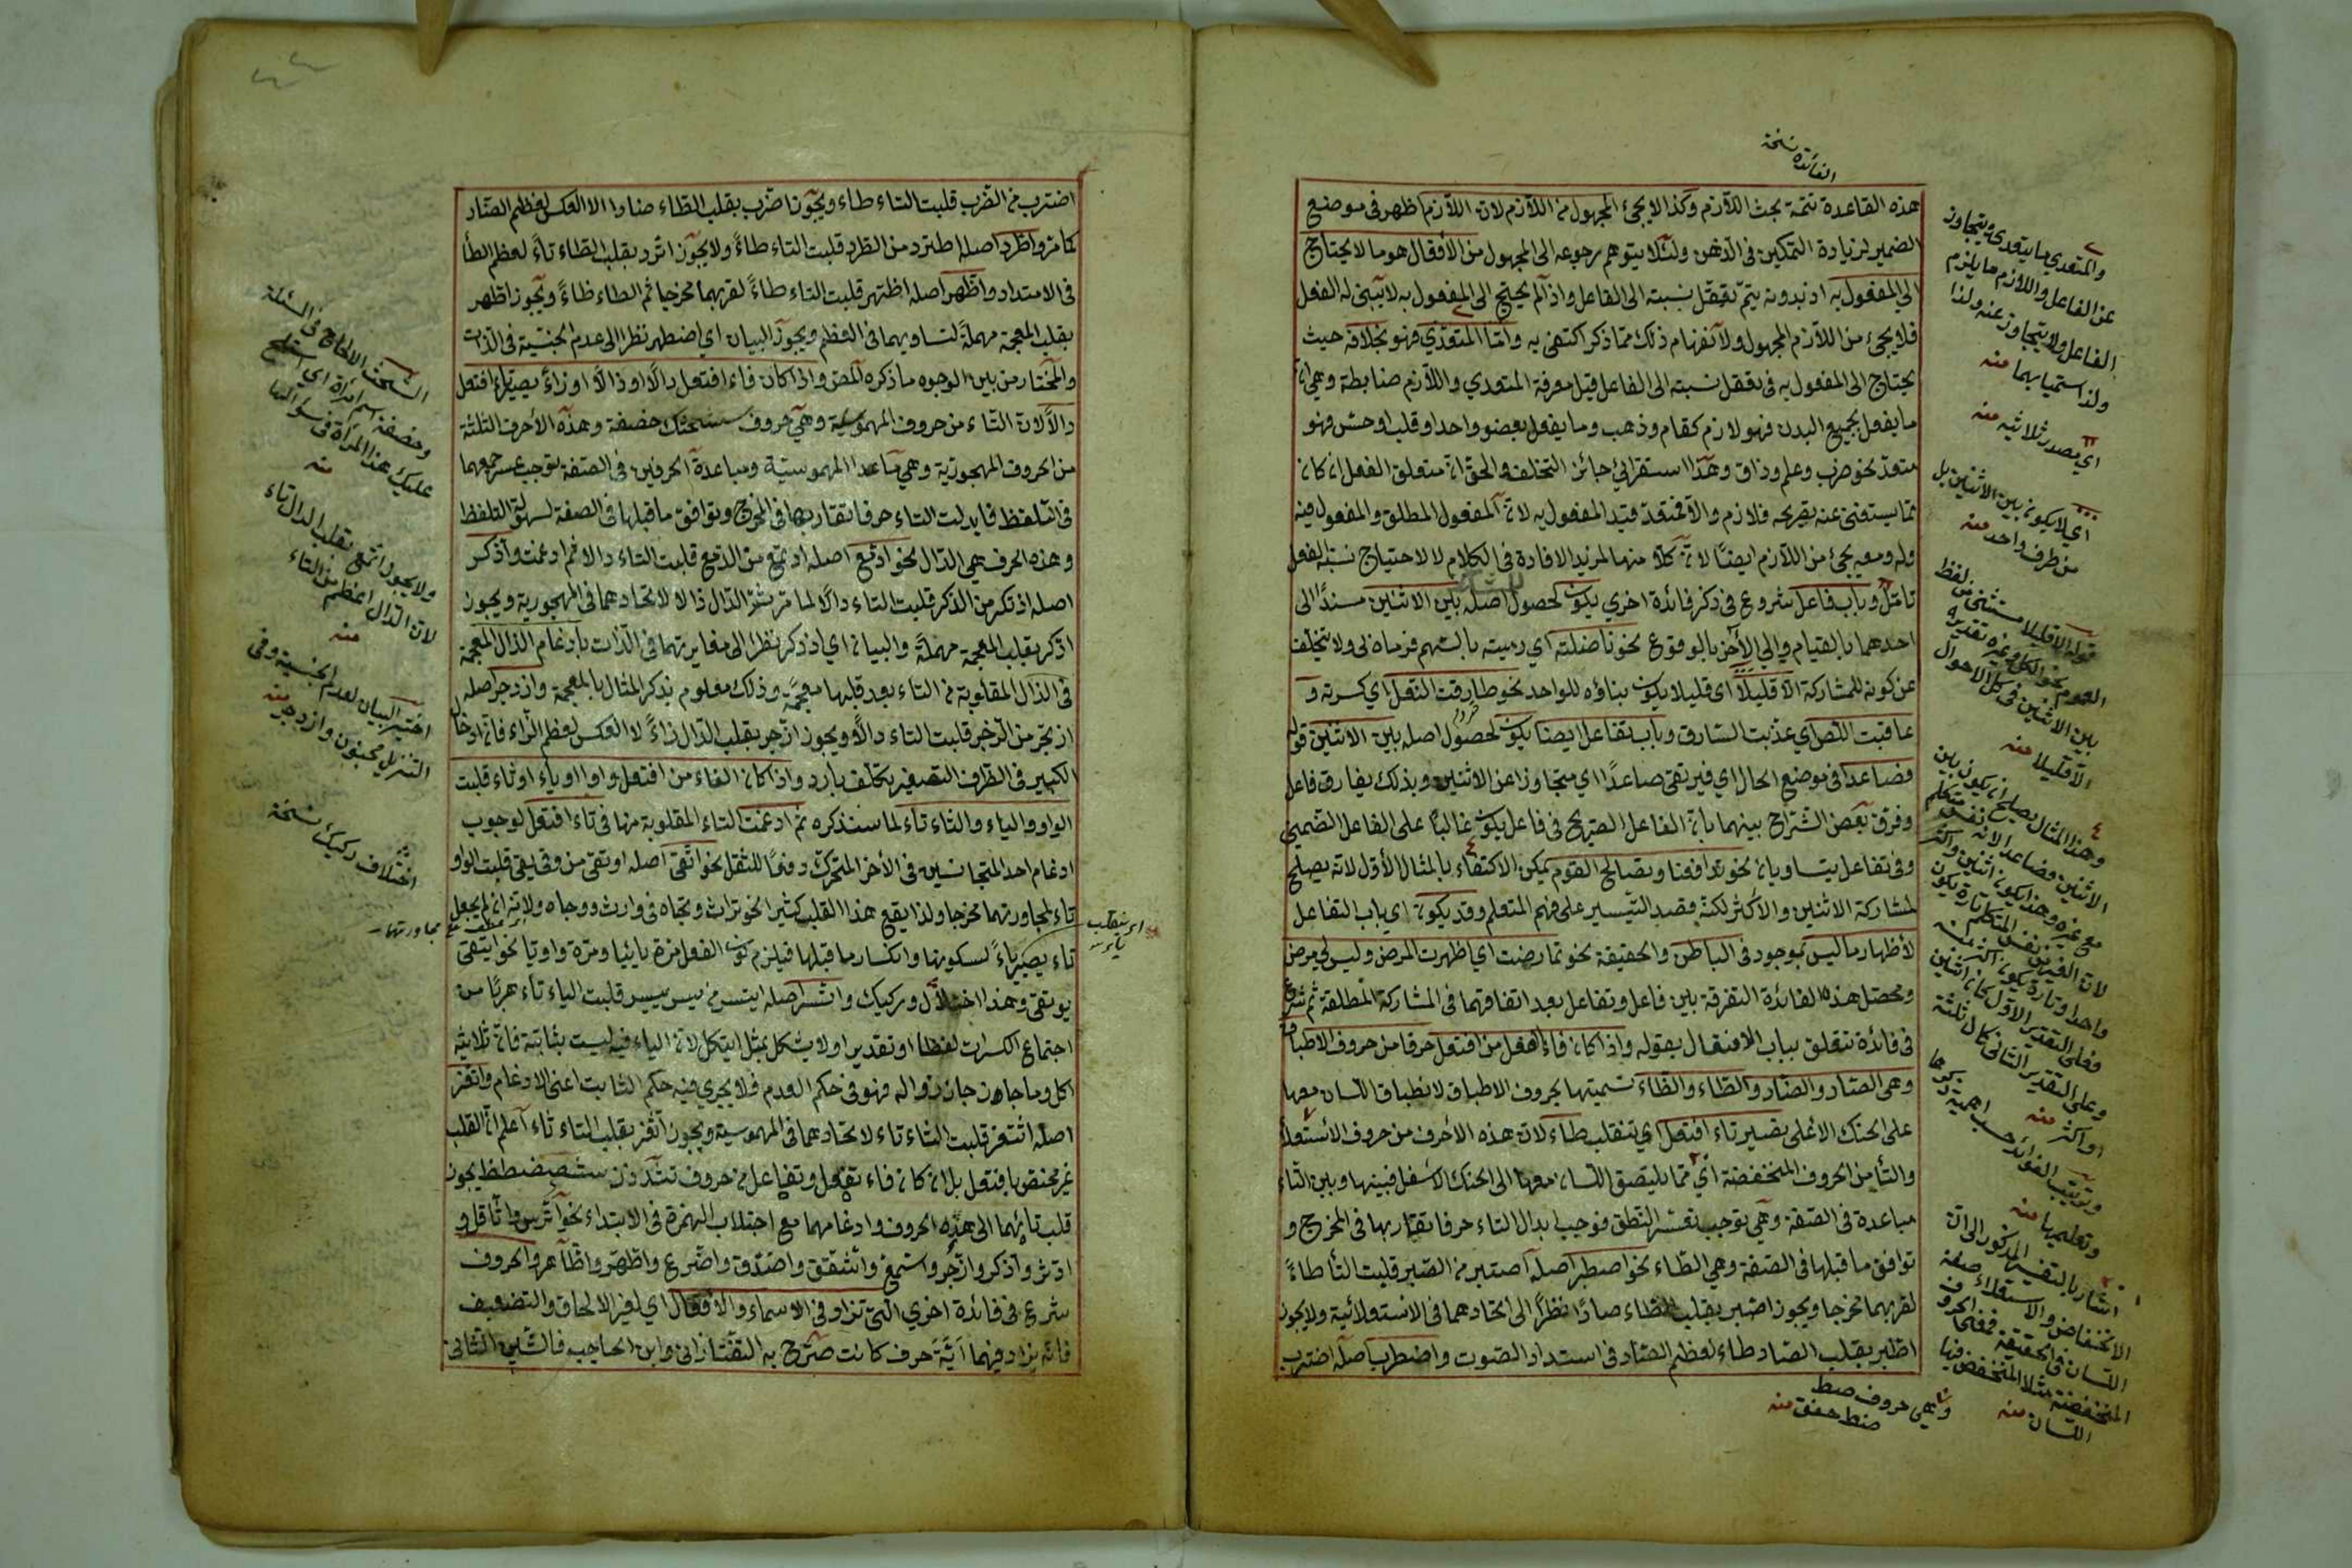 الفائدة نسخة
هذه القاعدة تتمة بحث اللازم وكذا لا يجئ المجهول من اللازم لان اللازم اظهر في موضع
الضمير لزيادة التمكين في الذهن ولئلا يتوهم رجوعه الى المجهول من الافعال هو ما لا يحتاج
الى المفعول به اذ بدونه يتم تعقل نسبته الى الفاعل واذ الم يحتج الى المفعول به لا يبنى له الفعل
فلا يجئ من اللازم المجهول ولانفهام ذلك مما ذكر اكتفى به واما المتعدي فهو بخلافه حيث
يحتاج الى المفعول به في تعقل نسبته الى الفاعل قيل معرفة المتعدي واللازم ضابطة وهي ان
ما يفعل بجميع البدن فهو لازم كقام وذهب وما يفعل بعضو واحد او قلب او حس فهو
متعد نحو ضرب وعلم وذاق وهذا استقرائي جائز التخلف والحق ان متعلق الفعل ان كان
مما يستغنى عنه بصريحه فلازم والا فمتعد قيد المفعول به لان المفعول المطلق والمفعول فيه
وله ومعه يجئ من اللازم ايضا لان كلا منها لمزيد الافادة في الكلام لا لاحتياج نسبة الفعل
تامل وباب فاعل شروع في ذكر فائدة اخري يكون لحصول اصله بين الاثنين مسندا الى
احدهما بالقيام والى الاخر بالوقوع نحو ناضلته اي رميته بالسهم فرماه لى ولا يتخلف
عن كونه للمشاركة الا قليلا اي قليلا يكون بناؤه للواحد نحو طارقت النعل اي كسرته و
عاقبت اللص اي عذبت السارق وباب تفاعل ايضا يكون لحصول اصله بين الاثنين قوله
فصاعدا في موضع الحال اي فيرتقى صاعدا اي متجاوزا عن الاثنين وبذلك يفارق فاعل
وفرق بعض الشراح بينهما بان الفاعل الصريح في فاعل يكون غالبا على الفاعل الضمني
وفي تفاعل يتساويان نحو تدافعنا وتصالح القوم يمكن الاكتفاء بالمثال الأول لانه يصلح
لمشاركة الاثنين والاكثر لكنه قصد التيسير على فهم المتعلم وقد يكون اي باب التفاعل
لأظهار ما ليس بموجود في الباطن والحقيقة نحو تمارضت اي اظهرت المرض وليس لى مرض
ومحصل هذه الفائدة التفرقة بين فاعل وتفاعل بعد اتفاقهما في المشاركة المطلقة ثم شرع
في فائدة تتعلق بباب الافتعال بقوله واذا كان فاء الفعل من افتعل حرفا من حروف الاطباق
وهي الصاد والضاد والطاء والظاء تسميتها بحروف الاطباق لانطباق اللسان معها
على الحنك الاعلى يصير تاء افتعل اي تنقلب طاء لان هذه الأحرف من حروف الاستعلا
والتا من الحروف المنخفضة اي مما يلتصق اللسان معها الى الحنك الاسفل فبينها وبين التاء
مباعدة في الصفة وهي توجب تعسر النطق فوجب ابدال التاء حرفا تقاربها في المخرج و
توافق ما قبلها في الصفة وهي الطاء نحو اصطبر اصله اصتبر من الصبر قلبت التا طاء
لقربهما مخرجا ويجوز اصبر بقلب الطاء صادا نظرا الى اتحادهما في الاستعلائية ولا يجوز
اطبر بقلب الصاد طاء لعظم الصاد في استداد الصوت واضطرب اصله اضترب
والمتعدي ما يتعدي ويتجاوز
عن الفاعل واللازم ما يلزم
الفاعل ولا يتجاوز عنه ولذا
ولذا سميا بهما منه
اي مصدر ثلاثيه منه
اي لا يكون بين الاثنين بل
من طرف واحد منه
قوله الا قليلا مستثنى من لفظ
بين الاثنين في كل الاحوال
الا قليلا منه
وهذا المثال يصلح ان يكون بين
وعلى التقدير الثانى كان ثلثة
او اكثر منه
وترتيب الفوائد حسب اهمية ذكرها
وتعليمها منه
اشار بالتفسير المذكور الى ان
الانخفاض والاستعلاء صفة
اللسان في الحقيقة فمعنى الحروف
المنخفضة مثلا المنخفض فيها
اللسان منه
وهي حروف صط
ضظ خغق منه
اضترب من الضرب قلبت التاء طاء ويجوز اضرب بقلب الطاء ضادا لا العكس لعظم الضاد
كما مر واطرد اصله اطترد من الطرد قلبت التاء طاء ولا يجوز اترد بقلب الطاء تاء لعظم الطا
في الامتداد واظهر اصله اظتهر قلبت التاء طاء لقربهما مخرجا ثم الطاء ظاء ويجوز اطهر
بقلب المعجمة مهملة لتساويهما في العظم ويجوز البيان اي اضطهر نظرا الى عدم الجنسية في الذات
والمختار من بين الوجوه ما ذكره المص واذا كان فاء افتعل دالا او ذالا او زاء يصير تاء افتعل
دالا لان التاء من حروف المهموسية وهي حروف ستشحثك خصفة وهذه الأحرف الثلثة
من الحروف المهجورية وهي ما عدا المهموسية ومباعدة الحرفين في الصفة توجب عسر جمعهما
في التلفظ فابدلت التاء حرفا تقاربها في المخرج وتوافق ما قبلها في الصفة لسهولة التلفظ
وهذه الحرف هي الدال نحو ادمع اصله ادتمع من الدمع قلبت التاء دالا فم ادغمت واذكر
اصله اذتكر من الذكر قلبت التاء دالا لما مر ثم الدال ذالا لاتحادهما في المهجورية ويجوز
ادكر بقلب المعجمة مهملة والبيان اي اذدكر نظرا الى مغايرتهما في الذات بادغام الذال المعجمة
في الذال المقلوبة من التاء بعد قلبها معجمة وذلك معلوم بذكر المثال بالمعجمة وازدجر اصله
ازتجر من الزجر قلبت التاء دالا ويجوز ازجر بقلب الدال زاء لا العكس لعظم الزاء فان ادخال
الكبير في الظرف الصغير تكلف بارد واذا كان الفاء من افتعل واوا او ياء او ثاء قلبت
الواو والياء والثاء تاء لما سنذكره ثم ادغمت التاء المقلوبة منها في تاء افتعل لوجوب
ادغام احد المتجانسين في الأخر المتحرك دفعا للثقل نحو اتقى اصله اوتقى من وقى يقى قلبت الواو
تاء لمجاورتهما مخرجا ولذا يقع هذا القلب كثيرا نحو تراث وتجاه في وارث ووجاه ولانه ان لم يجعل
تاء يصير ياء لسكونها وانكسار ما قبلها فيلزم كون الفعل مرة يائيا ومرة واويا نحو ايتقى
يوتقى وهذا اختلال وركيك واتسر اصله ايتسر من يسر ييسر قلبت الياء تاء هربا من
اجتماع الكسرات لفظا او تقديرا ولا يشكل بمثل ايتكل لان الياء فيه ليست بثابتة فان ثلاثيه
اكل وما جاهز جاز زواله فهو في حكم العدم فلا يجري فيه حكم الثابت اعنى الادغام واتغر
اصله اثتغر قلبت الثاء تاء لاتحادهما في المهموسية ويجوز اثغر بقلب التاء ثاء اعلم ان القلب
غير مختص بافتعل بل ان كان فاء تفعل وتفاعل من حروف تثدذز سشصضطظ يجوز
قلب تائهما الى هذه الحروف وادغامهما مع اجتلاب الهمزة في الابتداء نحو اترس واثاقل و
ادثر واذكر وازجر واسمع واشقق واصدق واضرع واطهر واظاهر والحروف
شرع في فائدة اخري التى تزاد في الاسماء والافعال اي لغير الالحاق والتضعيف
فانه يزاد فيهما اية حرف كانت صرح به التفتازانى وابن الحاجب فالشين الثانى
السحث الالحاح في السئلة
وخصفة اسم امرأة اي ستلح
عليك هذه المرأة في سؤالها
منه
ولا يجوز اتمع بقلب الدال تاء
لان الدال اعظم من التاء
منه
اختير البيان لعدم الجنسية وفي
التنزيل مجنون وازدجر منه
اختلاف ركيك نسخة